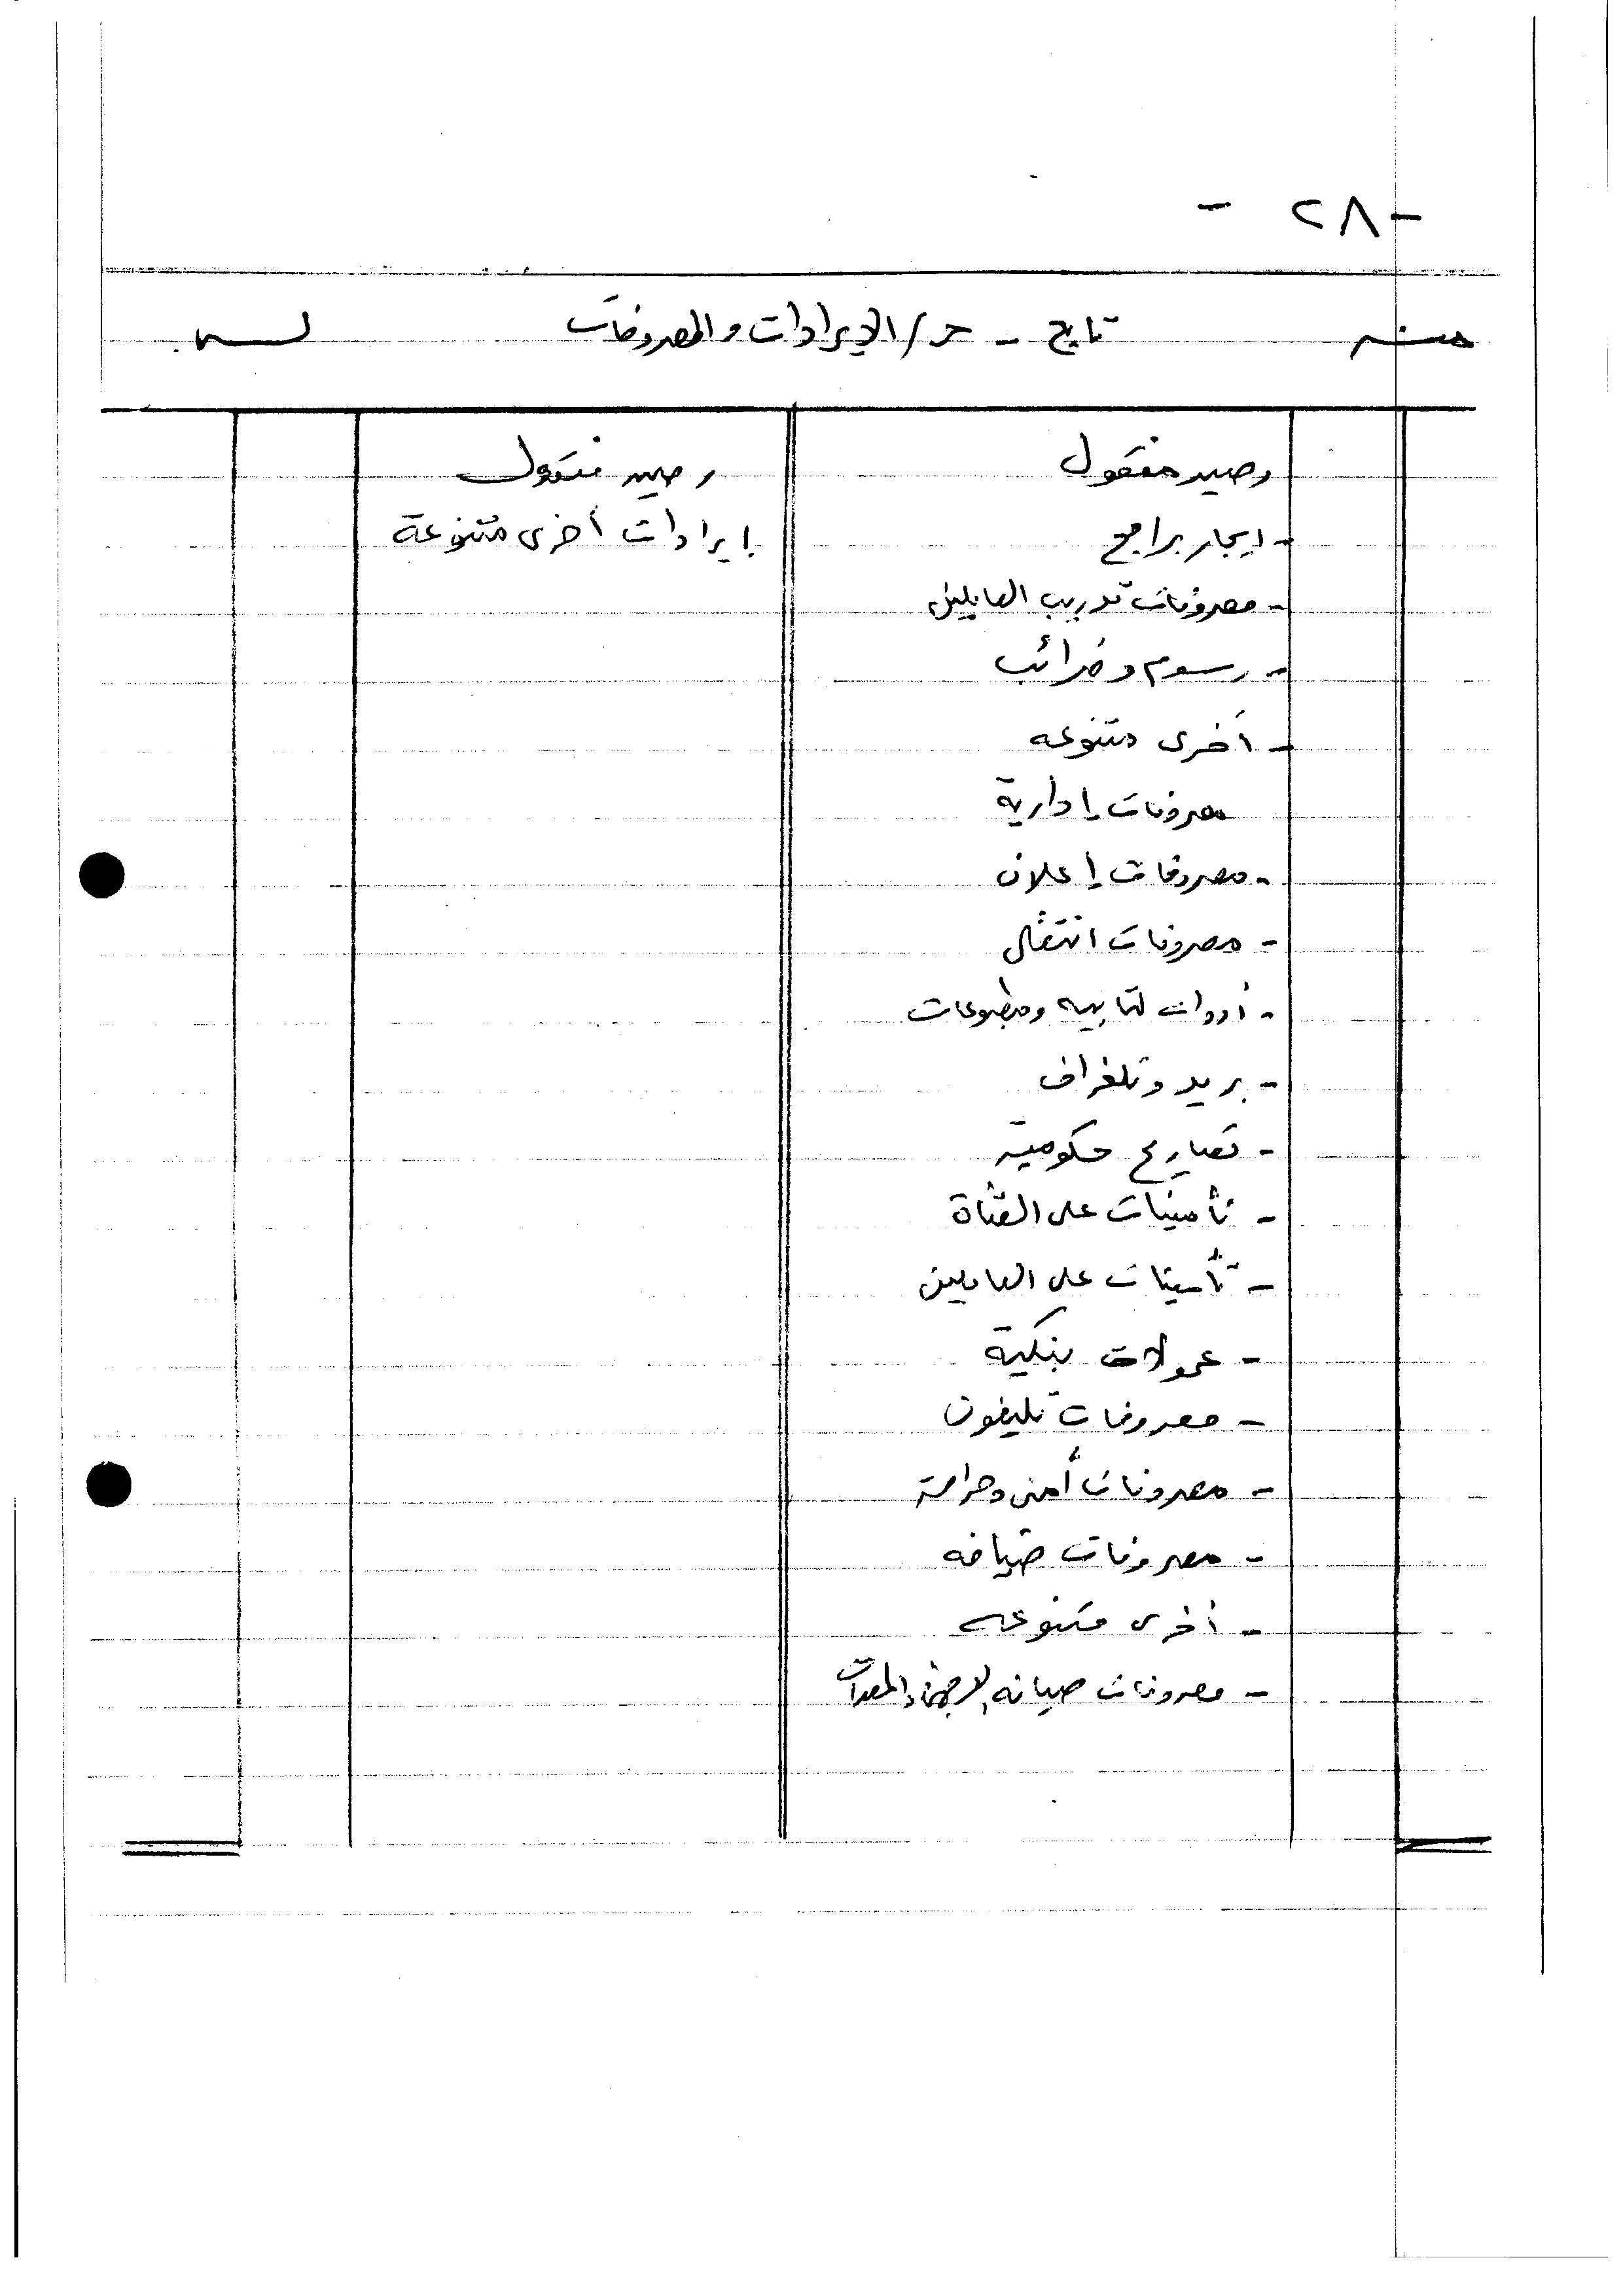 - ٢٨ -
منه تابع - ح/ الإيرادات والمصروفات له
رصيد منقول رصيد منقول
- ايجار برامج إيرادات أخرى متنوعة
- مصروفات تدريب العاملين
- رسوم وضرائب
- أخرى متنوعه
مصروفات إدارية
- مصروفات إعلان
- مصروفات انتقال
- أدوات كتابيه ومطبوعات
- بريد وتلغراف
- تصاريح حكومية
- تأمينات على القناة
- تأمينات على العاملين
- عمولات بنكية
- مصروفات تليفون
- مصروفات أمن وحراسة
- مصروفات ضيافه
- أخرى متنوعه
- مصروفات صيانه الاجهزة والمعدات